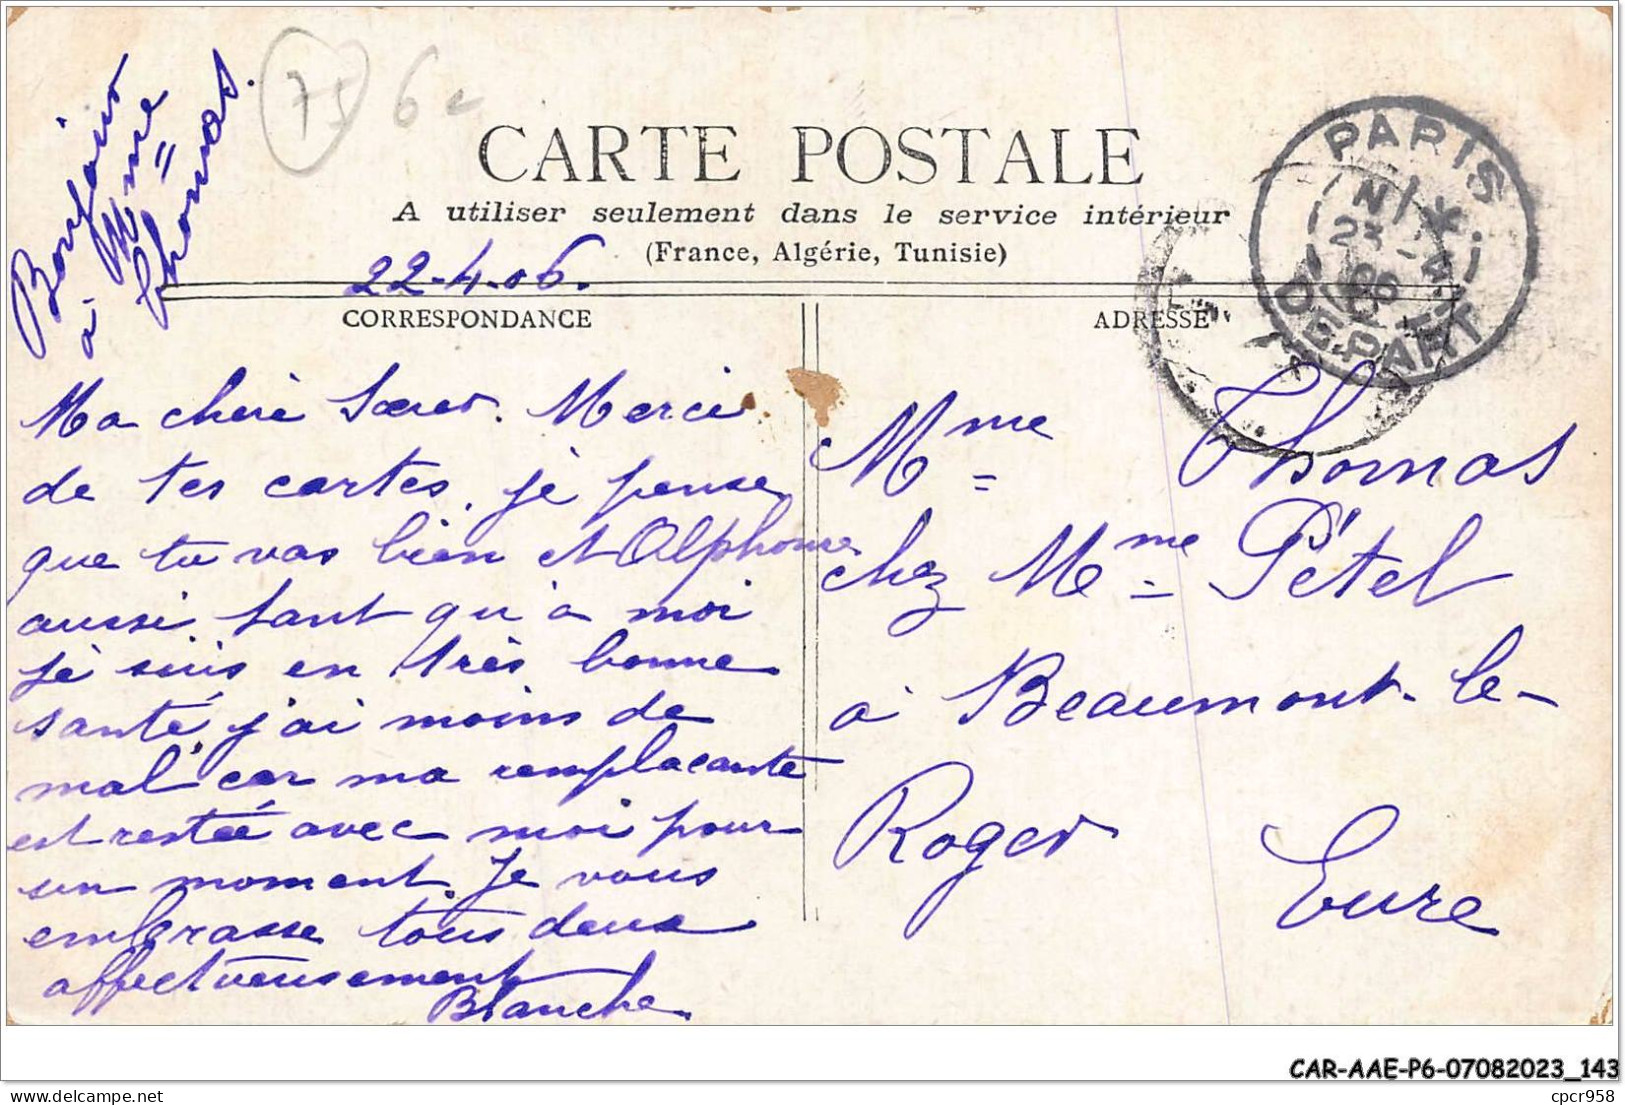 Bonjour
à Mme
Thomas.
75 6e
CARTE POSTALE
A utiliser seulement dans le service intérieur
(France, Algérie, Tunisie)
22-4-06.
CORRESPONDANCE
Ma chère Sœur. Merci
de tes cartes, je pense
que tu vas bien et Alphonse
aussi. tant qu'à moi
je suis en très bonne
santé, j'ai moins de
mal car ma remplaçante
est restée avec moi pour
un moment. Je vous
embrasse tous deux
affectueusement
Blanche
ADRESSE
PARIS
23
06
DEPART
Mme Thomas
chez Mme Pétel
à Beaumont-le-
Roger
Eure
CAR-AAE-P6-07082023_143
cpcr958